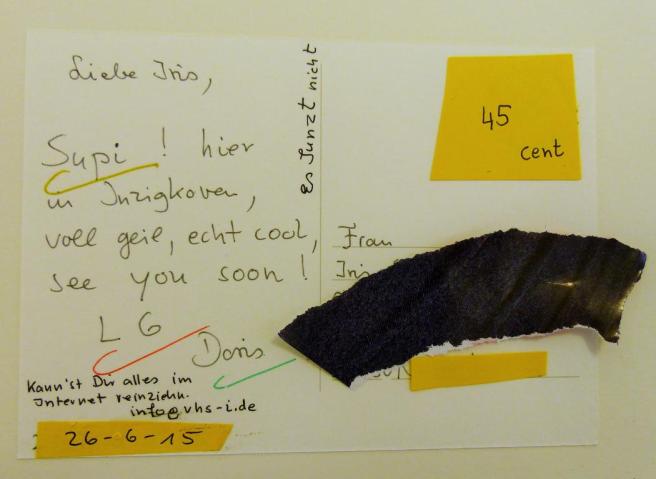 Liebe Iris,
Supi! hier
in Inzigkoven,
voll geil, echt cool,
see you soon!
L G
Doris
Kann'st Dir alles im
Internet reinziehn.
info@vhs-i.de
26-6-15
es funzt nicht
45
cent
Frau